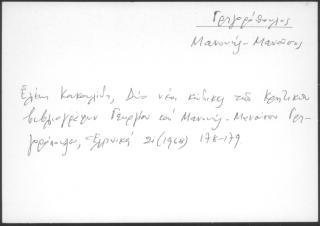 Γρηγορόπουλος
Μανουήλ-Μανοῦσος
Ἑλένη Κακουλίδη, Δύο νέοι κώδικες τῶν Κρητικῶν
βιβλιογράφων Γεωργίου καὶ Μανουήλ-Μανούσου Γρη-
γορόπουλου, Ἑλληνικά 21 (1968) 178-179